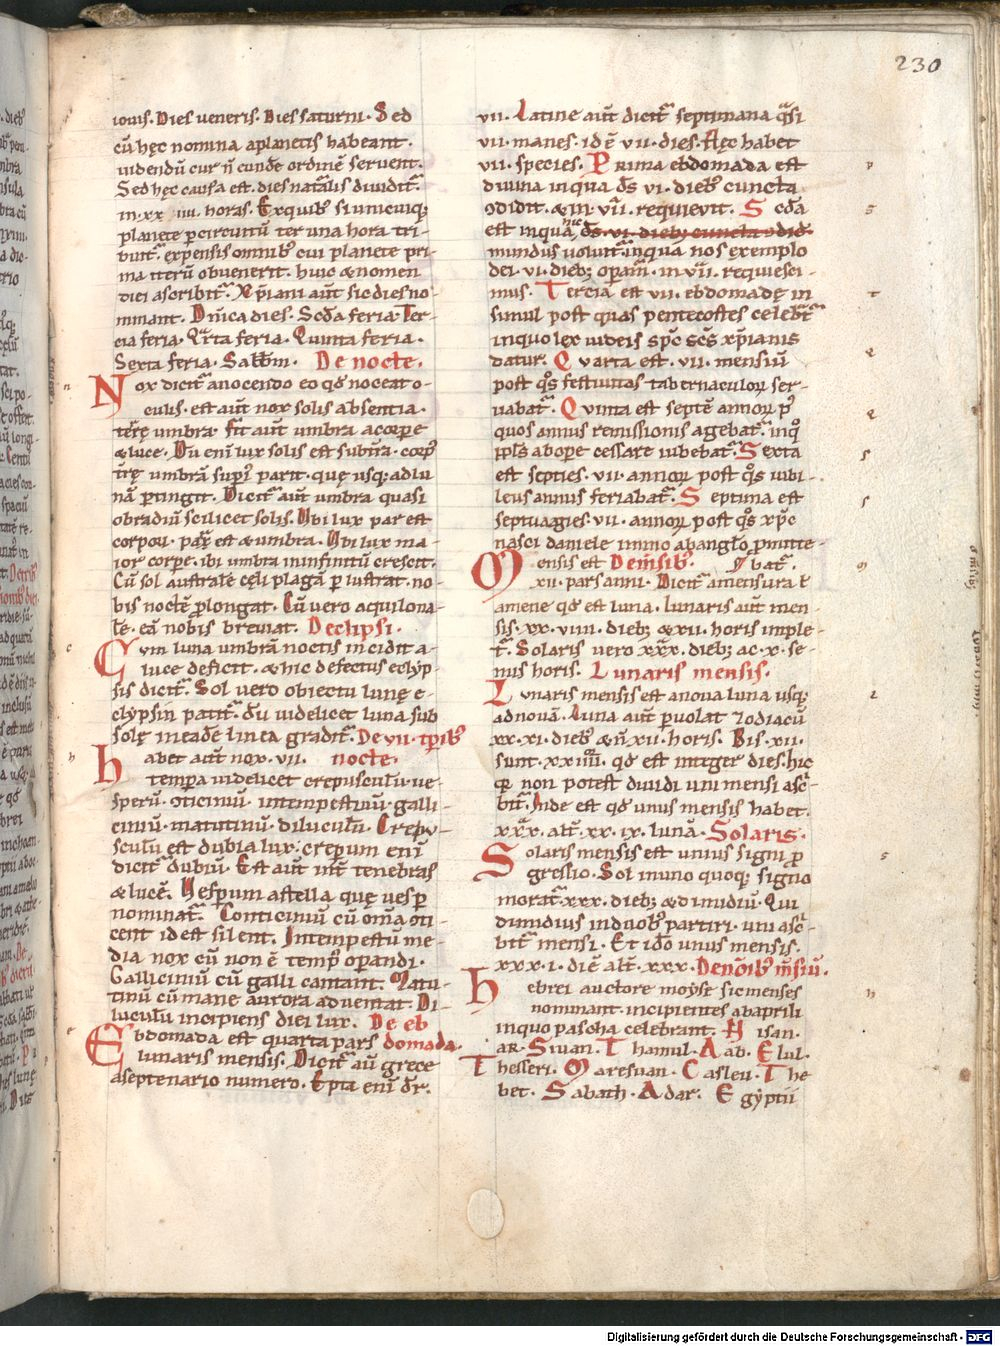 230
iouis. Dies ueneris. Dies saturni. Sed
cū hęc nomina aplanetis habeant.
uidendū cur ñ eundē ordinē seruent.
Sed hęc causa est. dies natalis diuidit̾
in .xx iiii. horas. Exquib; siunicuiq;
planete ꝑcircuitū ter una hora tri-
buit̾ expensis omnib; cui planete pri-
ma iterū obuenerit. huic & nomen
diei ascribit̾. Xp̄iani aut̄ sic dies no-
minant. Dn̄ica dies. Scda feria. Ter-
cia feria. Qrta feria. Quinta feria.
Sexta feria. Sabb̄m. De nocte.
Nox dicit̾ anocendo eo qd̄ noceat o-
culis. est aut̄ nox solis absentia.
terrę umbra. fit aut̄ umbra acorpore
& luce. Dū enī lux solis est subt̾ra. corp̾
trę umbrā sup̾i parit. quę usq; adlu
nā ꝑtingit. Dicit̾ aut̄ umbra quasi
obradiū scilicet solis. Ubi lux par est
corpori. par & umbra. Ubi lux ma-
ior corpe. ibi umbra ininfinitū crescit.
Cū sol australē cęli plagā ꝑ lustrat. no-
bis noctē ꝓlongat. Cū uero aquilona-
lē. eā nobis breuiat. De eclipsi.
Cum luna umbrā noctis incidit a-
luce deficit. & hic defectus eclyp-
sis dicit̾. Sol uero obiectu lunę e-
clypsin patit̾. dū uidelicet luna sub
solę ineadē linea gradit̾. De vii. tp̄ib;
habet aut̄ nox .vii. nocte.
tempa uidelicet crepusculū. ue-
sperū. 9ticiniū. intempestiuū. galli-
ciniū. matutinū. diluculū. Crepu-
sculū est dubia lux. crepum enī
dicit̾ dubiū. Est aut̄ int̾ tenebras
& lucē. Uesperum astella quę uesper
nominat̾. Conticiniū cū om̄a 9ti
cent id est silent. Intempestū me-
dia nox cū non ē temp̾ operandi.
Gallicinium cū galli cantant. Matu-
tinū cū mane aurora adueniat. Di-
luculū incipiens diei lux. De eb
Ebdomada est quarta pars domada.
lunaris mensis. Dicit̾ aū grece
aseptenario numero. Epta enī dr̄.
vii. Latine aut̄ dicit̾ septimana qsi
vii. manes. id ē vii. dies. Hęc habet
vii. species. Prima ebdomada est
diuina in qua ds̄ vi. dieb; cuncta
9didit. & in .vii. requieuit. Scda
est in qua hic ds̄. vi. dieb; cuncta 9did.
mundus uoluit̾ inqua nos exemplo
dei .vi. dieb; operam̾. in .vii. requiesci-
mus. Tercia est vii. ebdomadę in
simul post quas pentecostes celebrat̾
inquo lex iudeis sp̄c sc̄s xp̄ianis
datur. Quarta est. vii. mensiū
post qs̄ festiuitas tabernaculorum ser-
uabat̾. Quinta est septē annorum p̾
quos annus remissionis agebat̾. inq̊
pp̄ls abopere cessare iubebat̾. Sexta
est septies .vii. annorum post qs̄ iubi-
leus annus feriabat̾. Septima est
septuagies .vii. annorum post qs̄ xp̄c
nasci daniele immo abanglo ꝓmitte-
Mensis est De mēsib;. bat̾.
xii. pars anni. Dicit̾ amensura ł
amene qd̄ est luna. lunaris aut̄ men
sis .xx. viiii. dieb; & xii. horis imple-
t̾. Solaris uero .xxx. dieb; ac .x. se-
mis horis. Lunaris mensis.
Lunaris mensis est anoua luna usq;
adnouā. Luna aut̄ ꝑuolat zodiacū
xx. xi. dieb; & ñ xii. horis. Bis .xii.
sunt .xxiiii. qd̄ est integer dies. hic
qr̄ non potest diuidi uni mensi ascri-
bit̾. Inde est qd̄ unus mensis habet.
xxx. alt̾. xx. ix. lunā. Solaris.
Solaris mensis est unius signi ꝓ
gressio. Sol in uno quoq; signo
morat̾ .xxx. dieb; & dimidiū. Qui
dimidius induob; partiri. uni ascri-
bit̾ mensi. Et ido unus mensis.
xxx. i. diē alt̾. xxx. De nōib; m̄siū.
hebrei auctore moyse sic menses
nominant. incipientes abaprili
inquo pascha celebrant. Nisan.
ar. Siuan. Thamul. Aab. Elul.
Thesseri. Maresuan. Casleu. The
bet. Sabath. Adar. Egyptii
Digitalisierung gefördert durch die Deutsche Forschungsgemeinschaft - DFG